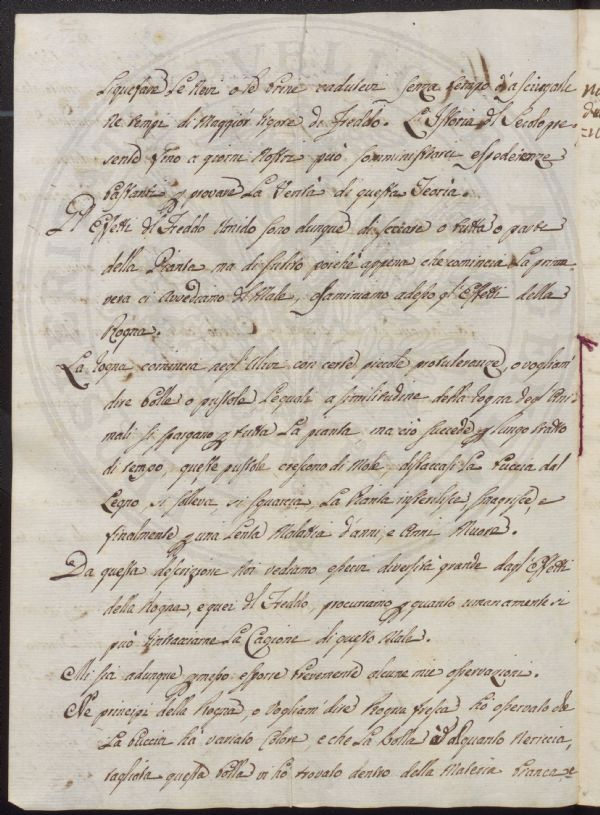 Liquefare Le Nevi o le brine cadutevi senza tempo d'asciugarle
Ne tempi di Maggior rigore di Freddo. L'Istoria del Secolo pre-
sente fino a giorni Nostri può somministrarci esperienze
bastanti p provare La Verità di questa Teoria.
Gl'Effetti del Freddo Umido sono dunque di seccare o tutta o parte
della Pianta ma di subito poiché appena che comincia La prima-
vera ci Avvediamo del Male, esaminiamo adesso gl'Effetti della
Rogna.
La rogna comincia negl'Ulivi con certe piccole protuberanze, o vogliam
dire bolle o pustole Le quali a similitudine della rogna degl'Ani-
mali si spargano p tutta La pianta, ma ciò succede p lungo tratto
di tempo, queste pustole crescono di Mole, distaccasi La buccia dal
Legno, si solleva, si squarcia, La Pianta insterilisce smagrisce, e
finalmente p una Lenta Malattia d'anni, e Anni Muore.
Da questa descrizione Noi vediamo esservi diversità grande dagl'Effetti
della Rogna, e quei del Freddo, procuriamo p quanto umanamente si
può rintracciarne La Cagione di questo Male.
Mi sia adunque esporre brevemente alcune mie osservazioni.
Ne principi della Rogna, o Vogliam dire Rogna fresca hò osservato che
La buccia hà variato Colore e che La bolla è alquanto Nericcia,
tagliata questa bolla vi hò trovato dentro della Materia biancae